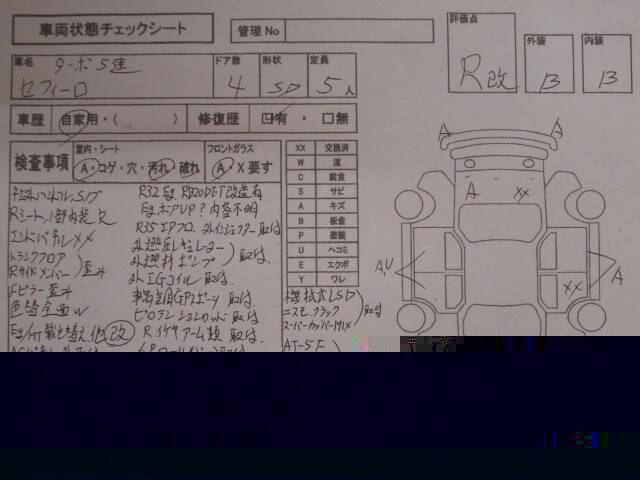 車両状態チェックシート
管理No
評価点
R改
外装
B
内装
B
車名 ターボ5速
セフィーロ
ドア数 4
形状 SD
定員 5人
車歴 自家用・( )
修復歴 有・□無
検査事項
室内・シート
A・コゲ・穴・汚れ・破れ
フロントガラス
A・X要す
XX 交換済
W 波
C 腐食
S サビ
A キズ
B 板金
P 塗装
U ヘコミ
E エクボ
Y ワレ
Rシート、内部内装欠
エンドパネルXX
トランクフロア
Rサイドメンバー
歪み
Fピラー歪み
色替全面W
Eg/MT載せ替え他改
R32 Eg RB20DET改造有
EgボアUP?内容不明
R35エアフロ、外インジェクター取付
外燃圧レギュレター
外燃料ポンプ
取付
外IGコイル取付
ピロテンションロッド取付
Rイケヤアーム類取付
機械式LSD
ニスモクラッチ
スーパーカッパーMIX
取付
AT-5F
A
A
A
XX
A,U
XX
A